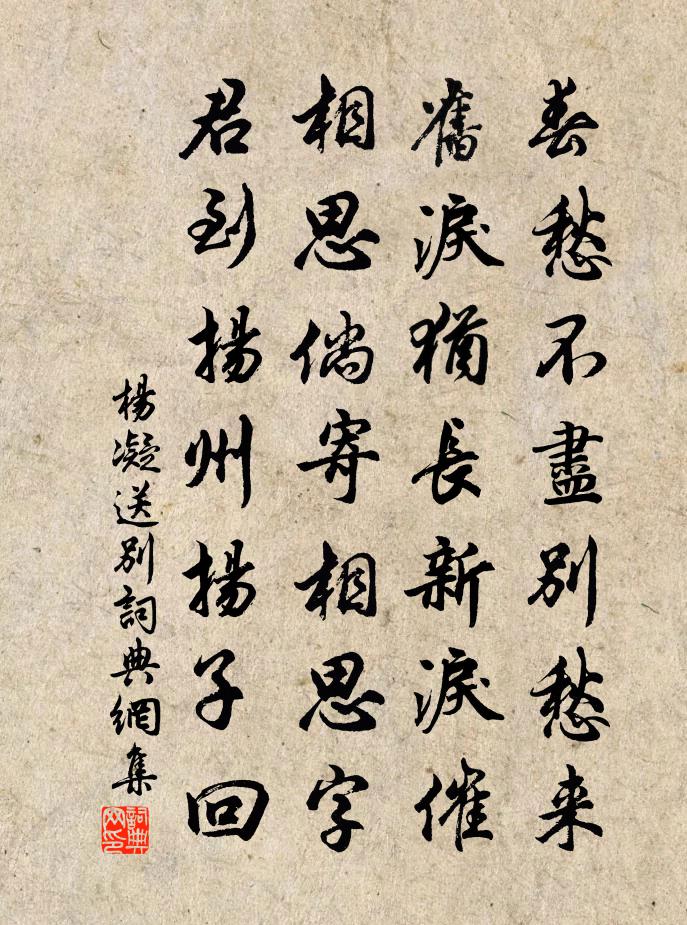 春愁不盡別愁来
舊淚猶長新淚催
相思倘寄相思字
君到揚州揚子回
楊凝送別詞典網集
詞典网印